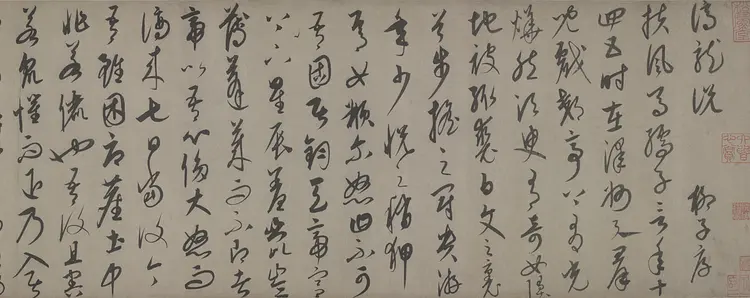 謫龍說 柳子厚
扶風馬孺子言年十
四五时在澤州與群
兒戲郊亭上有光
燁然須臾有奇女墜
地被緅裘白文之裏
首步搖之冠貴游
年少悅之稍狎
焉女頩尔怒曰不可
吾固居鈞天帝宮
下上星辰羞
薄蓬萊而不即者
帝以吾心侈大怒而
謫来七日當復今
吾雖困辱塵土中
非若儷也吾復且害
若眾懼而退乃入居